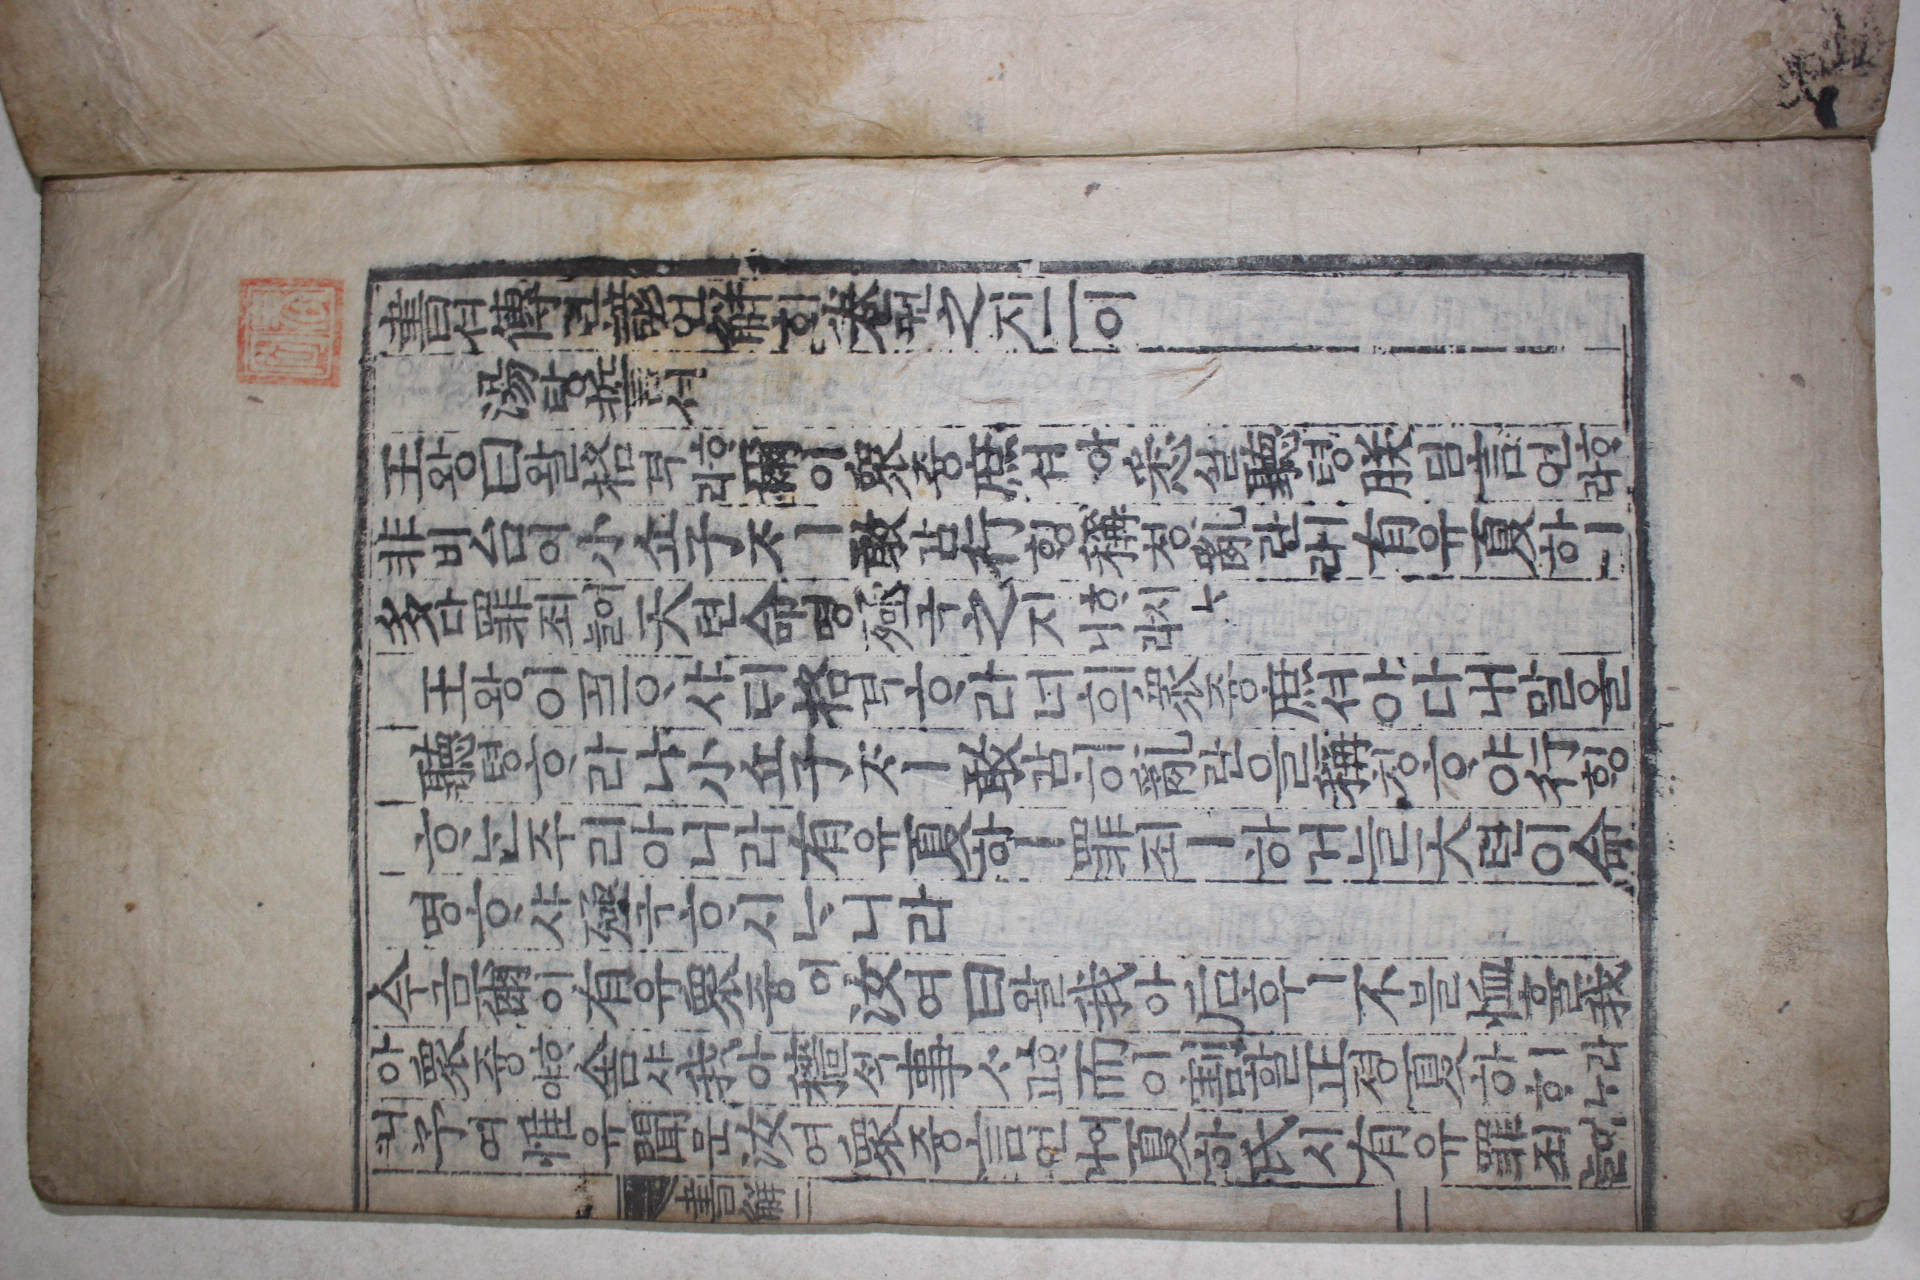 書셔傳젼諺언解ᄒᆡ卷권之지二이
湯탕誓셔
王왕曰왈格격ᄒᆞ라爾이衆즁庶셔아悉실聽텽朕딤言언ᄒᆞ라
非비台이小쇼子ᄌᆞㅣ敢감行ᄒᆡᆼ稱칭亂란이라有유夏하ㅣ
多다罪죄어ᄂᆞᆯ天텬命명殛극之지ᄒᆞ시ᄂᆞ니라
王왕이ᄀᆞᆯᄋᆞ샤ᄃᆡ格격ᄒᆞ라너희衆즁庶셔아다내말을
聽텽ᄒᆞ라나小쇼子ᄌᆞㅣ敢감히亂란을稱칭ᄒᆞ야行ᄒᆡᆼ
ᄒᆞᄂᆞᆫ주리아니라有유夏하ㅣ罪죄ㅣ하거늘天텬이命
명ᄒᆞ샤殛극ᄒᆞ시ᄂᆞ니라
今금爾이有유衆즁이汝여曰왈我아后후ㅣ不블恤휼我
아衆즁ᄒᆞ야舍샤我아穡ᄉᆡᆨ事ᄉᆞᄒᆞ고而이割할正졍夏하ㅣ라ᄒᆞᄂᆞ
니予여惟유聞문汝여衆즁言언이나夏하氏시有유罪죄ᄒᆞ
書解二